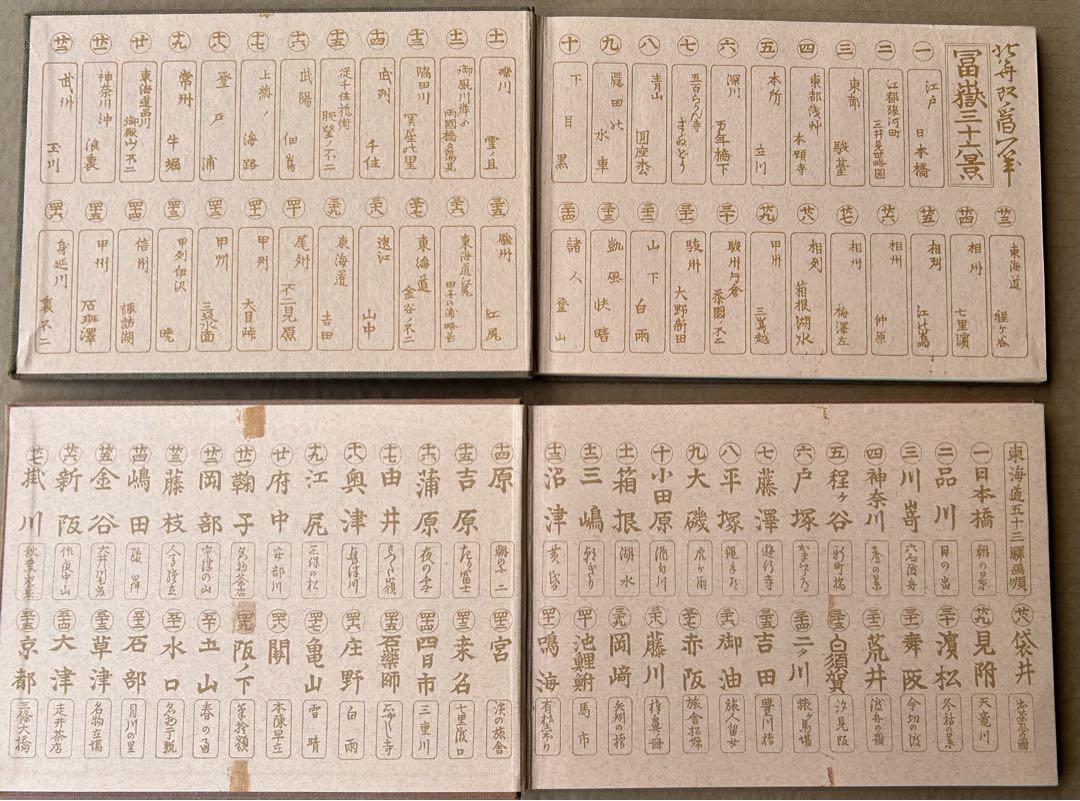 北斎改爲一筆
冨嶽三十六景
一 江戸 日本橋
二 江都駿河町 三井見世略図
三 東都 駿台
四 東都浅艸 本願寺
五 本所 立川
六 深川 万年橋下
七 五百らかん寺 さゞゐどう
八 青山 圓座枩
九 隠田の 水車
十 下目黒
十一 礫川 雪ノ旦
十二 御厩川岸より 両國橋夕陽見
十三 隅田川 関屋の里
十四 武列 千住
十五 従千住花街 眺望ノ不二
十六 武陽 佃嶌
十七 上緫 海路
十八 登戸浦
十九 常州 牛堀
廿 東海道品川 御殿山ノ不二
廿一 神奈川沖 浪裏
廿二 武州 玉川
廿三 東海道 程ケ谷
廿四 相州 七里濱
廿五 相列 江の嶌
廿六 相州 仲原
廿七 相州 梅澤左
廿八 相列 箱根湖水
廿九 甲州 三嶌越
三十 駿州片倉 茶園ノ不二
三十一 駿州 大野新田
三十二 山下白雨
三十三 凱風快晴
三十四 諸人登山
三十五 駿州 江尻
三十六 東海道江尻 田子の浦略啚
三十七 東海道 金谷ノ不二
三十八 遠江 山中
三十九 東海道 吉田
四十 尾列 不二見原
四十一 甲列 犬目峠
四十二 甲州 三坂水面
四十三 甲列伊沢 暁
四十四 信州 諏訪湖
四十五 甲州 石班澤
四十六 身延川 裏不二
東海道五十三驛画順
一 日本橋 朝の景
二 品川 日の出
三 川嵜 六合渡舟
四 神奈川 臺の景
五 程ヶ谷 新町橋
六 戸塚
七 藤澤 遊行寺
八 平塚 縄手道
九 大磯 虎ヶ雨
十 小田原 酒匂川
十一 箱根 湖水
十二 三嶋 朝ぎり
十三 沼津 黄昏
十四 原 朝の不二
十五 吉原 左り富士
十六 蒲原 夜の雪
十七 由井 さった嶺
十八 奥津 興津川
十九 江尻 三保の松
廿 府中 安部川
廿一 鞠子 名物茶店
廿二 岡部 宇津の山
廿三 藤枝 人馬継立
廿四 嶋田 駿岸
廿五 金谷 大井川遠岸
廿六 新阪 佐夜中山
廿七 掛川 秋葉山遠望
廿八 袋井 出茶屋の圖
廿九 見附 天竜川
三十 濱松 冬枯の景
三十一 舞阪 今切の渡
三十二 荒井 渡舟の圖
三十三 白須賀 汐見阪
三十四 二タ川 猿ヶ馬場
三十五 吉田 豊川橋
三十六 御油 旅人留女
三十七 赤阪 旅舎招婦
三十八 藤川 棒鼻圖
三十九 岡﨑 矢矧の橋
四十 池鯉鮒 馬市
四十一 鳴海 有松しぼり
四十二 宮 濱の旅舎
四十三 桒名 七里渡口
四十四 四日市 三重川
四十五 石藥師 石やくし寺
四十六 庄野 白雨
四十七 亀山 雪晴
四十八 関 本陣早立
四十九 阪ノ下 筆捨嶺
五十 土山 春の雨
五十一 水口 名物干瓢
五十二 石部 目川の里
五十三 草津 名物立場
五十四 大津 走井茶店
五十五 京都 三條大橋